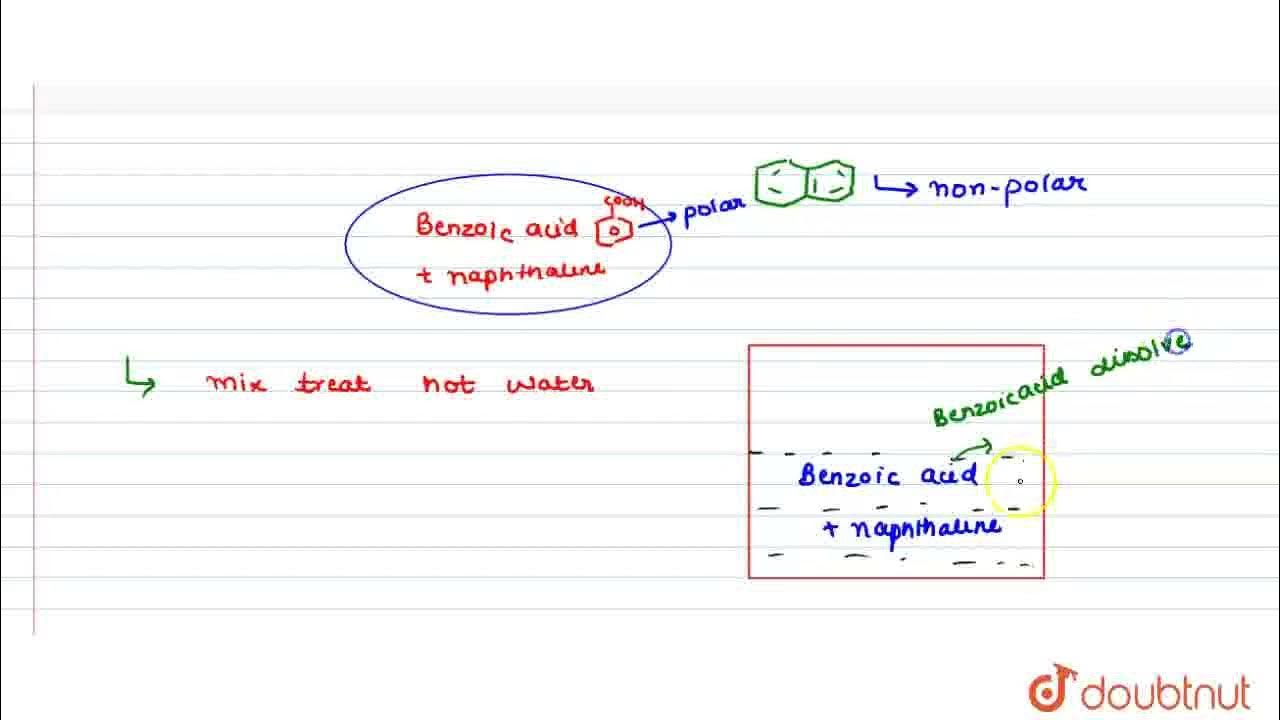 COOH
Benzoic acid
+ naphthalene
polar
non-polar
mix treat hot water
Benzoic acid disolve
Benzoic acid
+ naphthalene
doubtnut